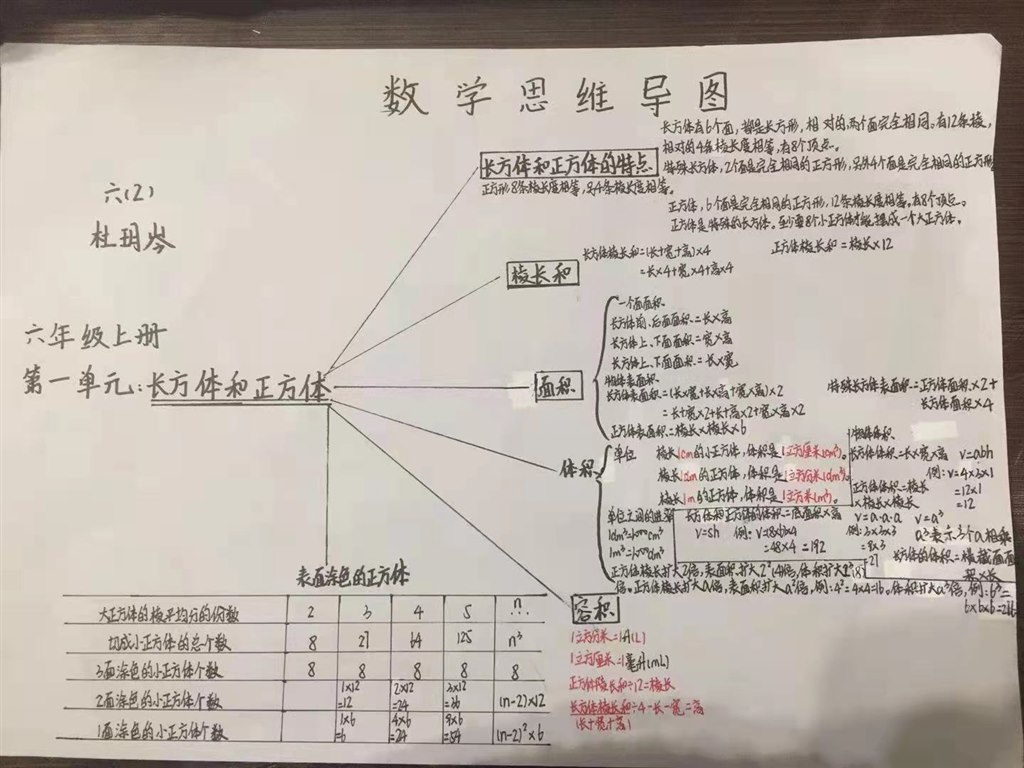 数学思维导图
六(2)
杜玥岑
六年级上册
第一单元:长方体和正方体
长方体和正方体的特点
长方体有6个面,都是长方形,相对的两个面完全相同。有12条棱,
相对的4条棱长度相等,有8个顶点。
特殊长方体,2个面是完全相同的正方形,另外4个面是完全相同的正方形
正方形8条棱长度相等,另4条棱长度相等。
正方体,6个面是完全相同的正方形,12条棱长度相等。有8个顶点。
正方体是特殊的长方体。至少要8个小正方体才能摆成一个大正方体。
棱长和
长方体棱长和=(长+宽+高)×4
=长×4+宽×4+高×4
正方体棱长和=棱长×12
面积
一个面面积
长方体前、后面面积=长×高
长方体上、下面面积=宽×高
长方体上、下面面积=长×宽
物体表面积
长方体表面积=(长×宽+长×高+宽×高)×2
=长+宽×2+长+高×2+宽×高×2
正方体表面积=棱长×棱长×6
特殊长方体表面积=正方体面积×2+
长方体面积×4
体积
单位
棱长1cm的小正方体,体积是1立方厘米(cm³)。
棱长1dm的正方体,体积是1立方分米(dm³)。
棱长1m的正方体,体积是1立方米(m³)。
物体体积
长方体体积=长×宽×高 v=abh
例:v=4×3×1
=12×1
=12
正方体体积=棱长
×棱长×棱长
v=a·a·a v=a³
例:3×3×3
=9×3
=27
a³表示三个a相乘
单位之间的进率
1dm³=1000cm³
1m³=1000dm³
长方体和正方体的体积=底面积×高
v=sh 例:v=8×6×4
=48×4=192
长方体的体积=横截面面
积×长
正方体棱长扩大2倍,表面积扩大2²(4)倍,体积扩大2³(8)
倍。正方体棱长扩大a倍,表面积扩大a²倍,例:4²=4×4=16。体积扩大a³倍,例:6³=
6×6×6=216
容积
1立方分米=1升(L)
1立方厘米=1毫升(mL)
正方体棱长和÷12=棱长
长方体棱长和÷4-长-宽=高
(长+宽+高)
表面涂色的正方体
大正方体的棱平均分的份数 2 3 4 5 n...
切成小正方体的总个数 8 27 64 125 n³
3面涂色的小正方体个数 8 8 8 8 8
2面涂色的小正方体个数 1×12=12 2×12=24 3×12=36 (n-2)×12
1面涂色的小正方体个数 1×6=6 4×6=24 9×6=54 (n-2)²×6